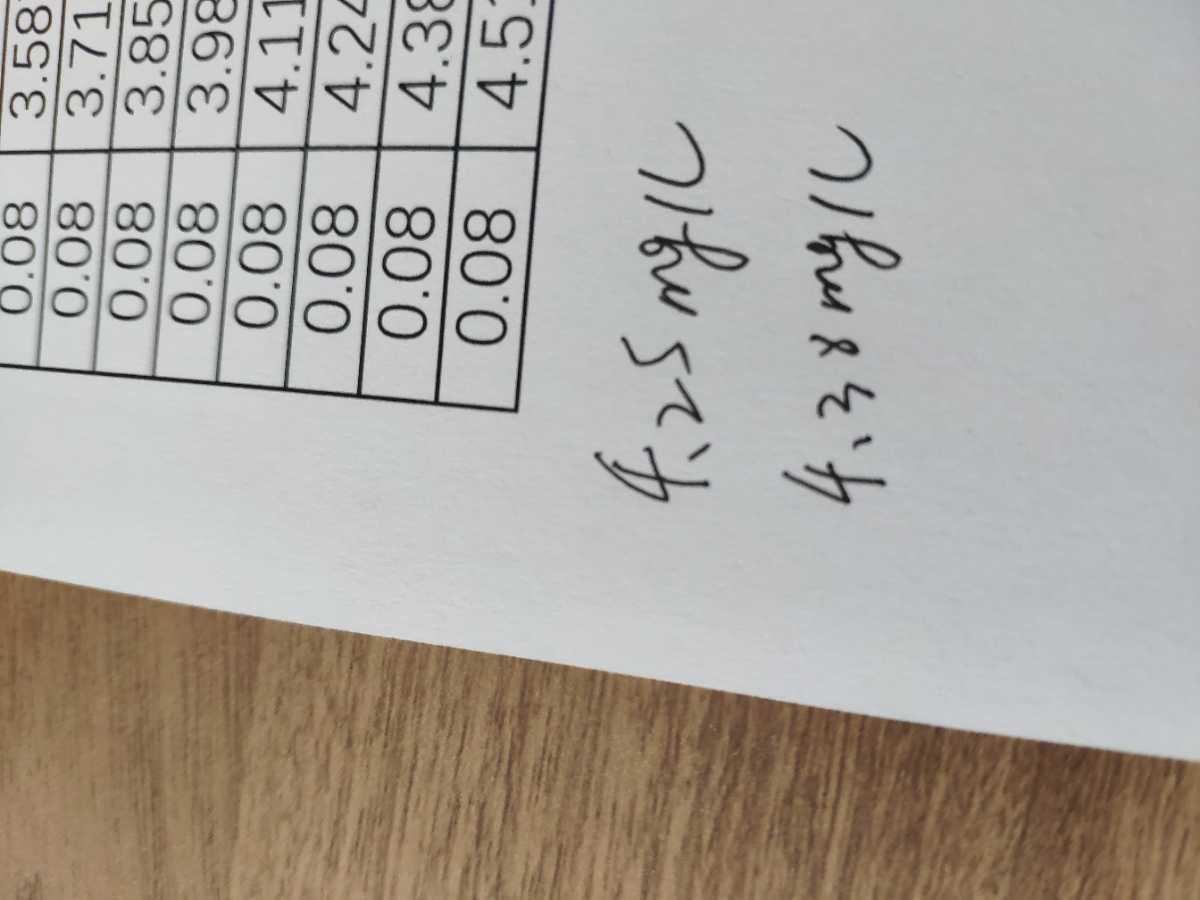 0.08 3.58
0.08 3.71
0.08 3.85
0.08 3.98
0.08 4.11
0.08 4.24
0.08 4.38
0.08 4.51
4.25 mg/L
4.38 mg/L